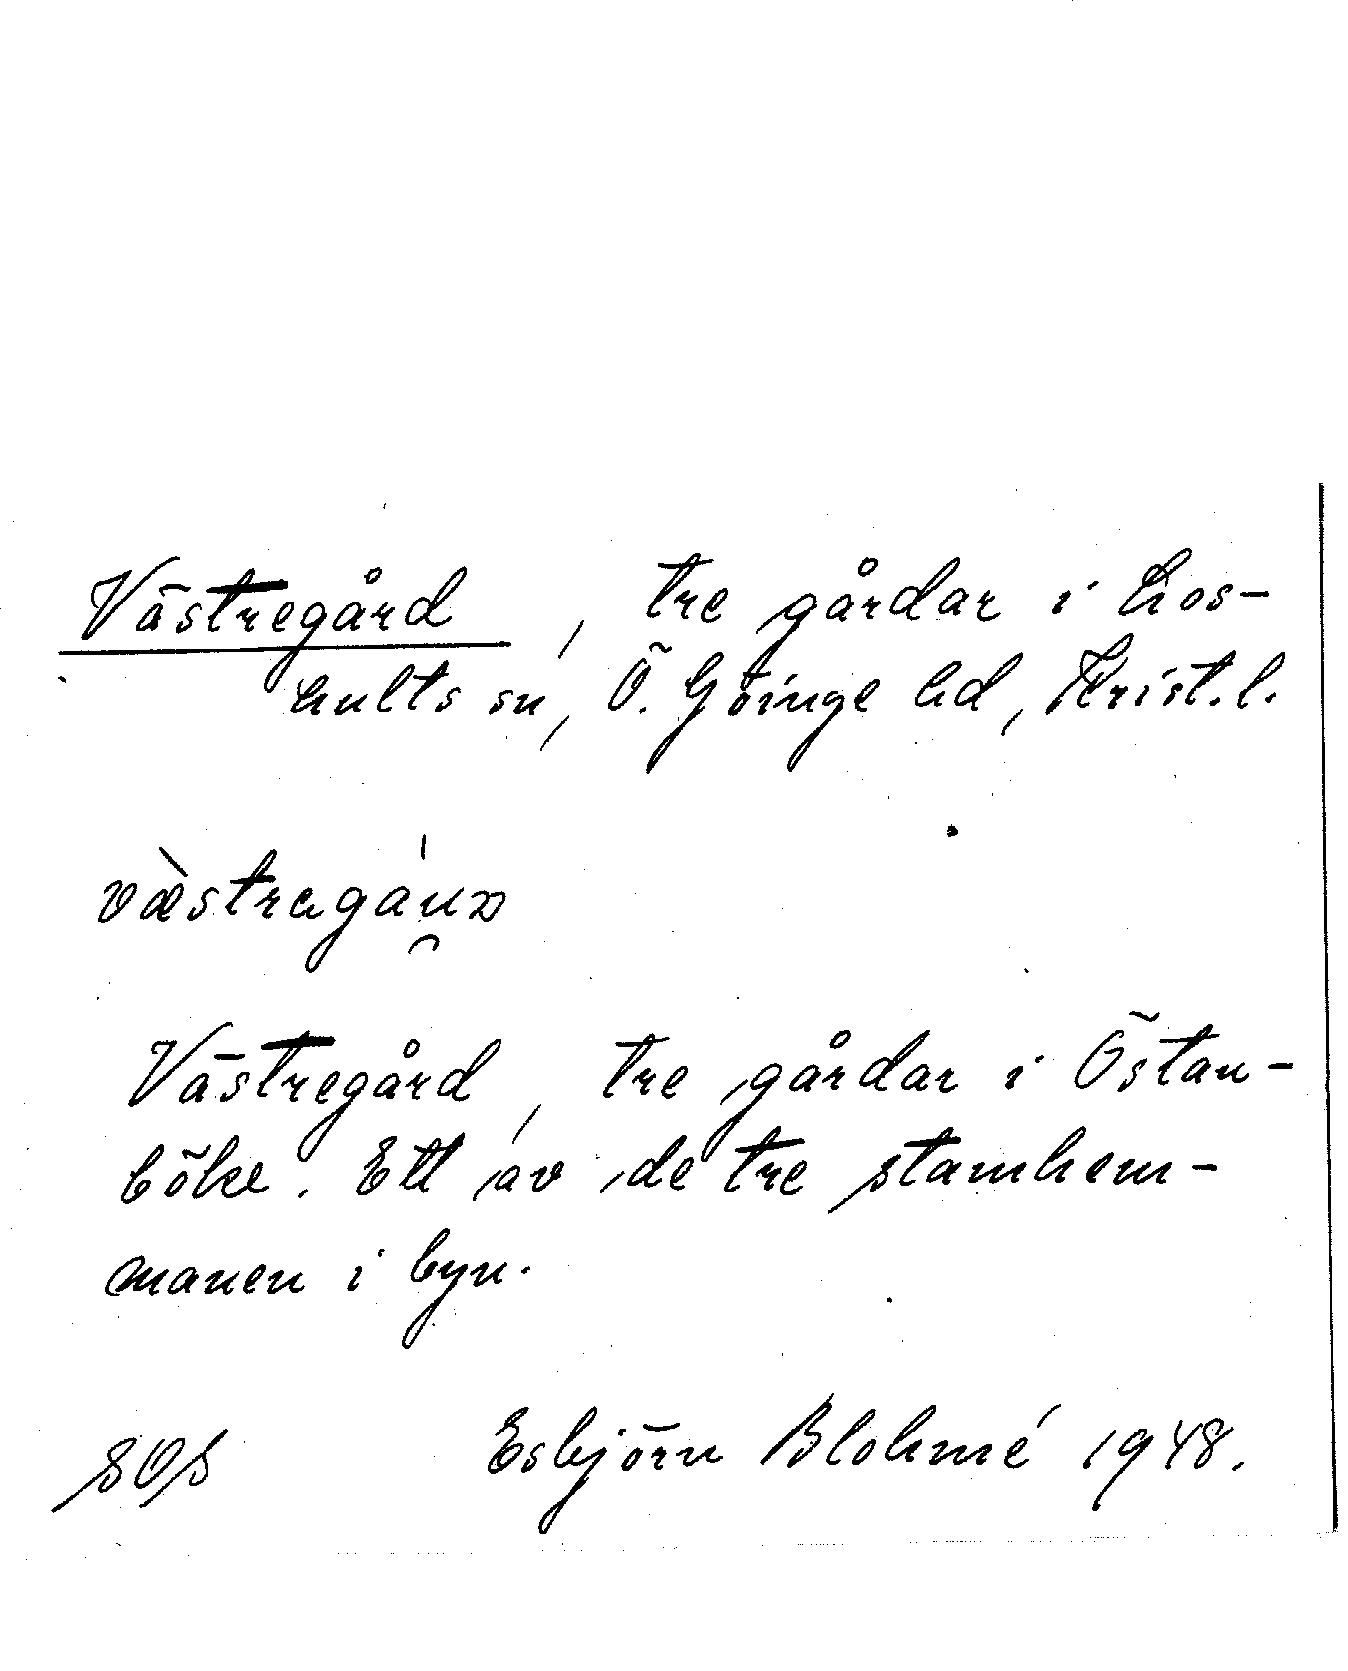 Västregård, tre gårdar i Los-
hults sn, Ö. Göinge hd, Krist.l.
Västregård, tre gårdar i Östan-
böke. Ett av de tre stamhem-
manen i byn.
Esbjörn Blohmé 1948.